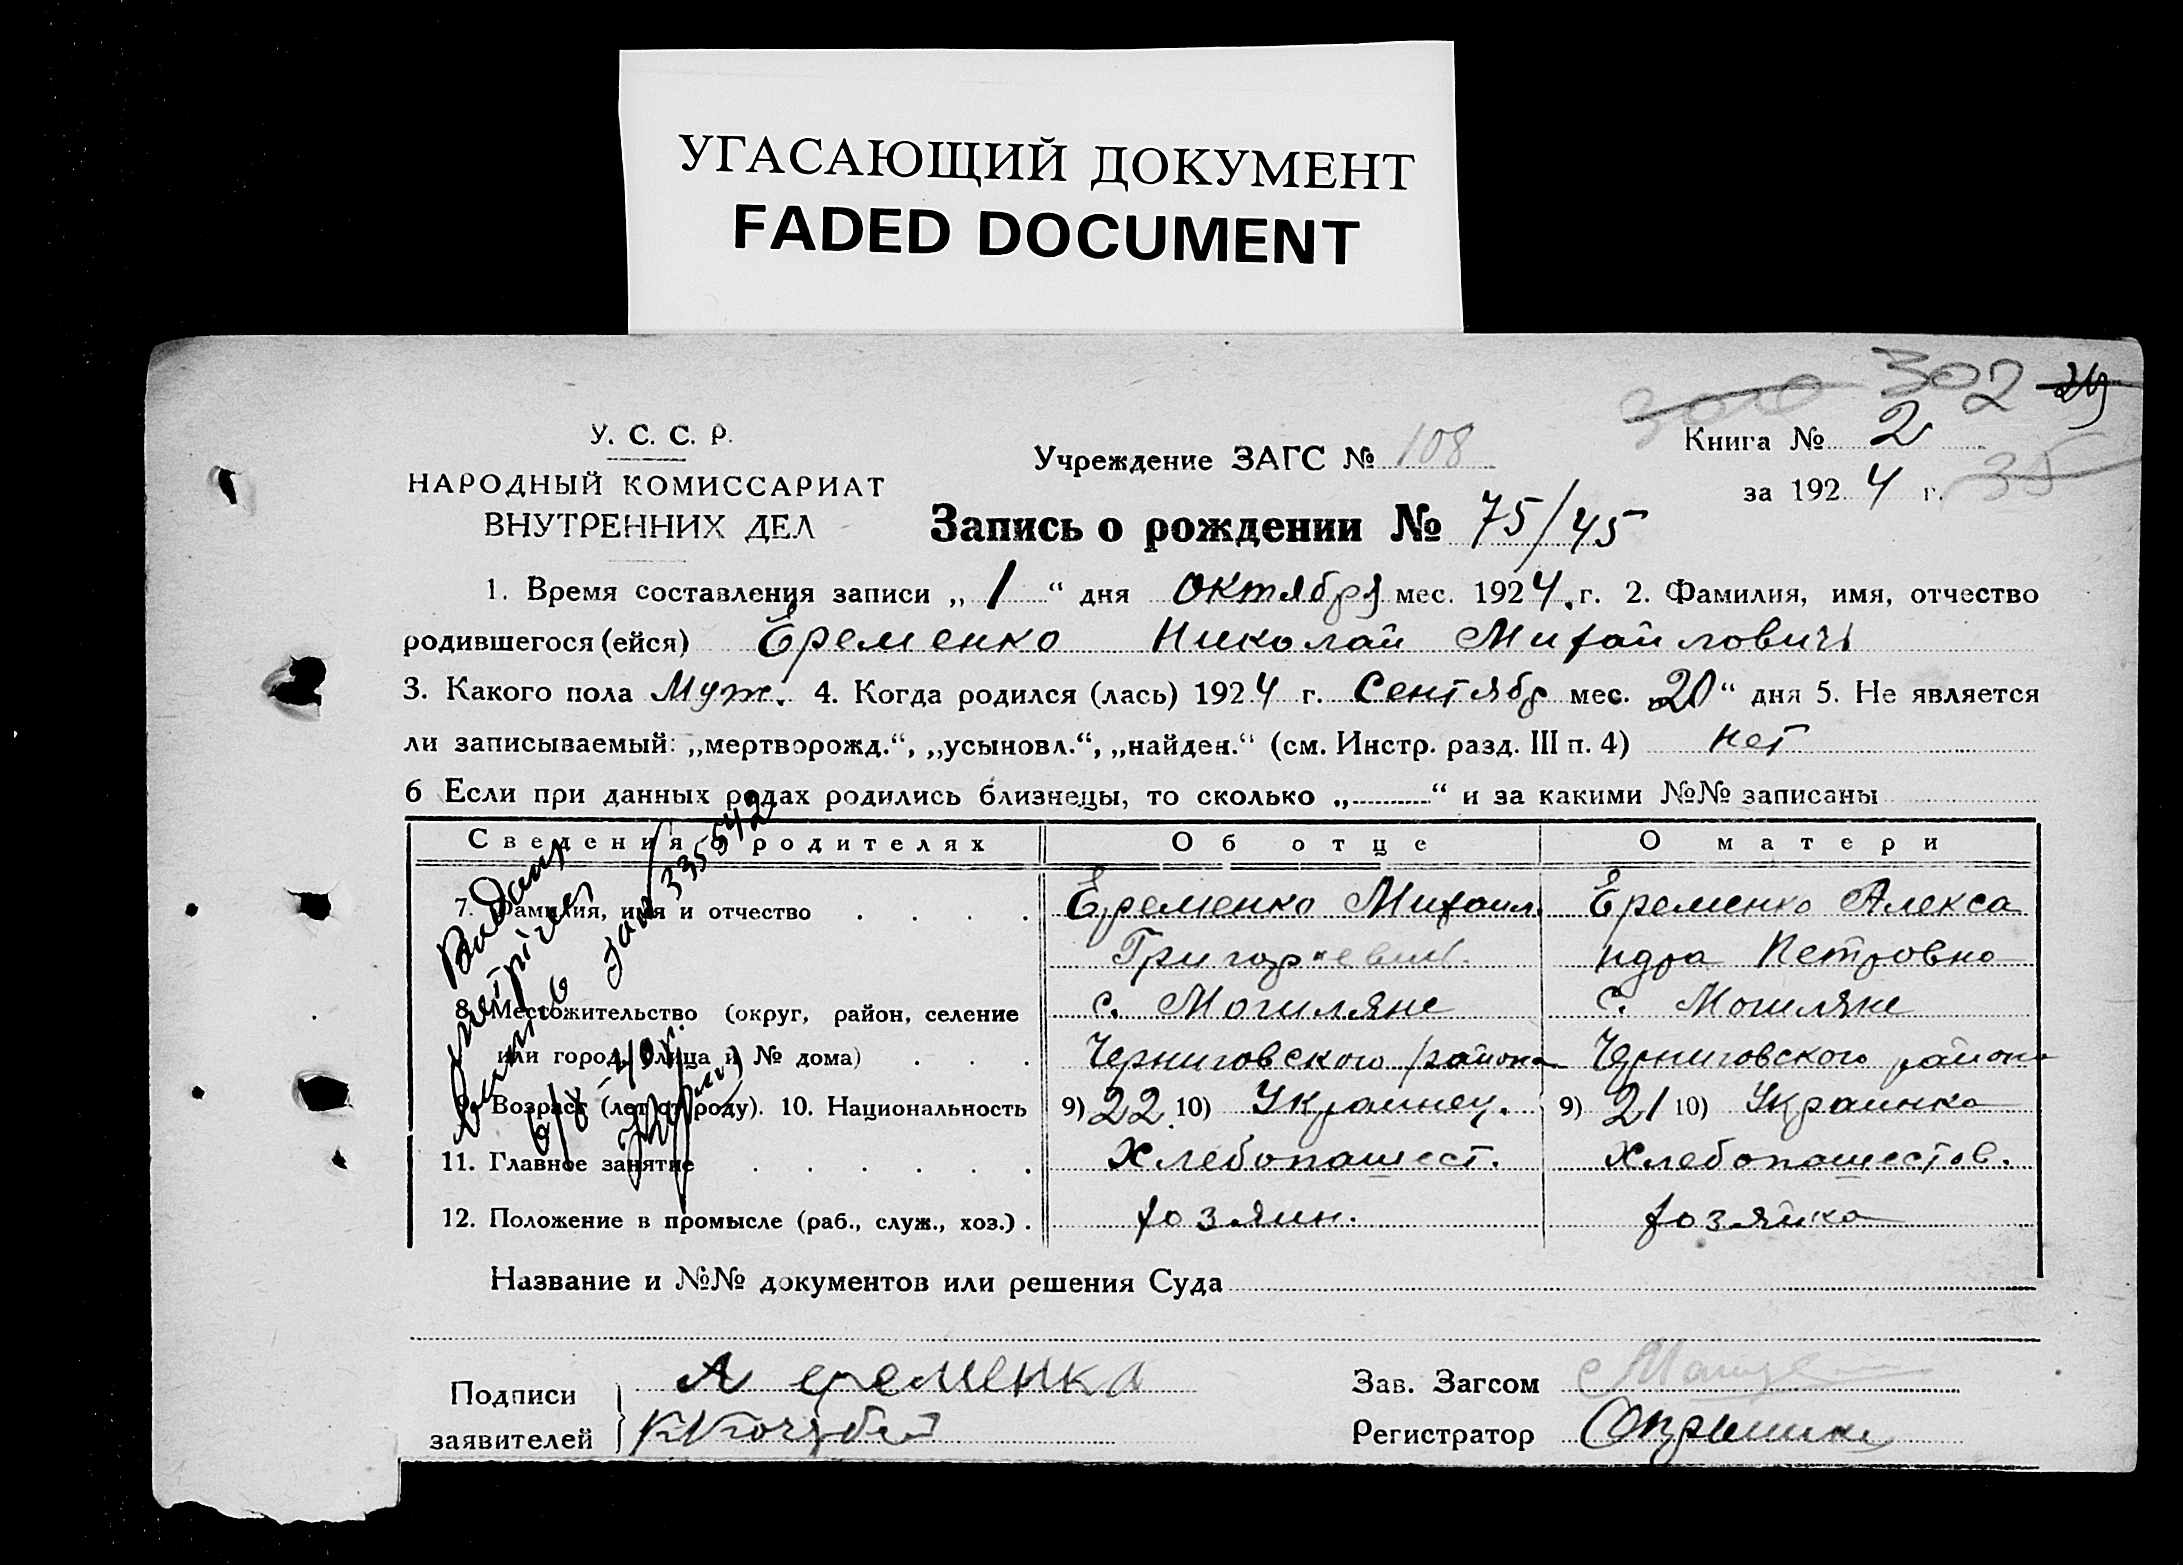 УГАСАЮЩИЙ ДОКУМЕНТ
FADED DOCUMENT
300 302
У. С. С. Р.
НАРОДНЫЙ КОМИССАРИАТ
ВНУТРЕННИХ ДЕЛ
Учреждение ЗАГС № 108
Книга № 2
за 1924 г. 35
Запись о рождении № 75/45
1. Время составления записи „1“ дня октября мес. 1924 г. 2. Фамилия, имя, отчество
родившегося (ейся) Еременко Николай Михайловичъ
3. Какого пола Муж. 4. Когда родился (лась) 1924 г. Сентябр мес. 20“ дня 5. Не является
ли записываемый: „мертворожд.“, „усыновл.“, „найден.“ (см. Инстр. разд. III п. 4) нет
6 Если при данных родах родились близнецы, то сколько „..........“ и за какими №№ записаны
Сведения о родителях Об отце О матери
7. Фамилия, имя и отчество Еременко Михаил. Еременко Алекса
Григорьевич. ндра Петровна
8. Местожительство (округ, район, селение с. Могиляне с. Могиляне
или город, улица и № дома) Черниговского района Черниговского района
9. Возраст (лет от роду). 10. Национальность 9) 22. 10) Украинец. 9) 21 10) Украинка
11. Главное занятие Хлебопашест. Хлебопашестов.
12. Положение в промысле (раб., служ., хоз.) хозяин. хозяйка
Выдану
метрічну
335542
Название и №№ документов или решения Суда
Подписи заявителей А еременка
К Кочубей
Зав. Загсом
Регистратор